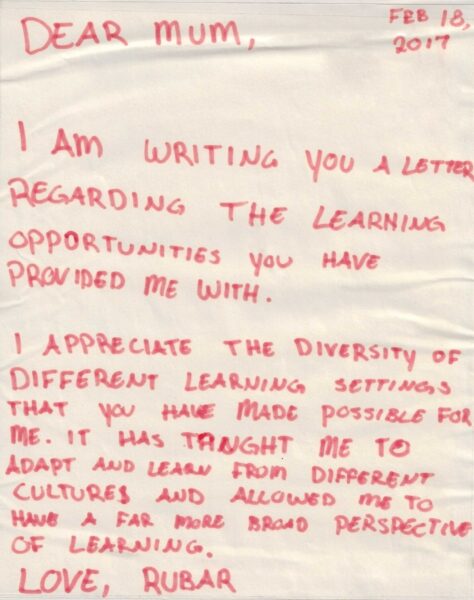 FEB 18,
DEAR MUM,
2017
I AM WRITING YOU A LETTER
REGARDING THE LEARNING
OPPORTUNITIES YOU HAVE
PROVIDED ME WITH.
I APPRECIATE THE DIVERSITY OF
DIFFERENT LEARNING SETTINGS
THAT YOU HAVE MADE POSSIBLE FOR
ME. IT HAS TANGHT ME TO
ADAPT AND LEARN FROM DIFFERENT
CULTURES AND ALLOWED ME TO
HAVE A FAR MORE BROAD PERSPECTIVE
OF LEARNING.
LOVE, RUBAR